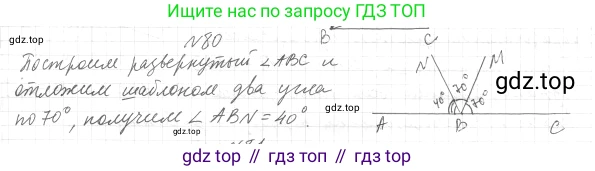 Ищите нас по запросу ГДЗ ТОП
gdz.top
№80
B C
Построим развернутый ∠ABC и
отложим шаблоном два угла
по 70°, получим ∠ABN = 40°.
N M
gdz.top
40° 70° 70°
A B C
gdz.top
gdz.top // гдз.топ // gdz.top